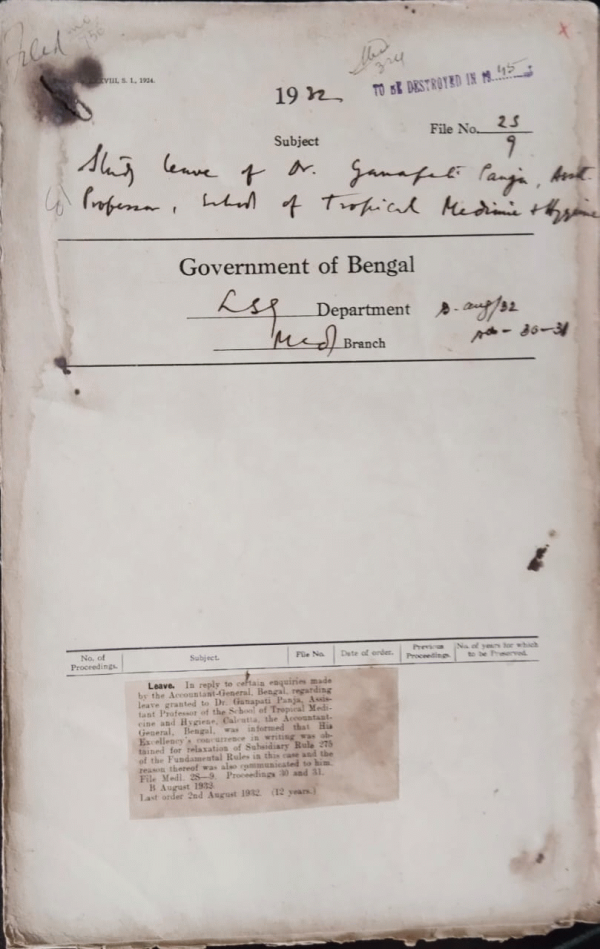 Filed
XVIII, S. I., 1924.
1932
TO BE DESTROYED IN 1945
File No. 2S/9
Subject
Study leave of Dr. Ganapati Panja, Asst.
Professor, School of Tropical Medicine & Hygiene
Government of Bengal
LSG Department B. Aug/32
Medl Branch 30-31
No. of Proceedings. Subject. File No. Date of order. Previous Proceedings. No. of years for which to be Preserved.
Leave. In reply to certain enquiries made
by the Accountant-General, Bengal, regarding
leave granted to Dr. Ganapati Panja, Assis-
tant Professor of the School of Tropical Medi-
cine and Hygiene, Calcutta, the Accountant-
General, Bengal, was informed that His
Excellency's concurrence in writing was ob-
tained for relaxation of Subsidiary Rule 275
of the Fundamental Rules in this case and the
reason thereof was also communicated to him.
File Medl. 2S—9. Proceedings 30 and 31.
B August 1932.
Last order 2nd August 1932. (12 years.)